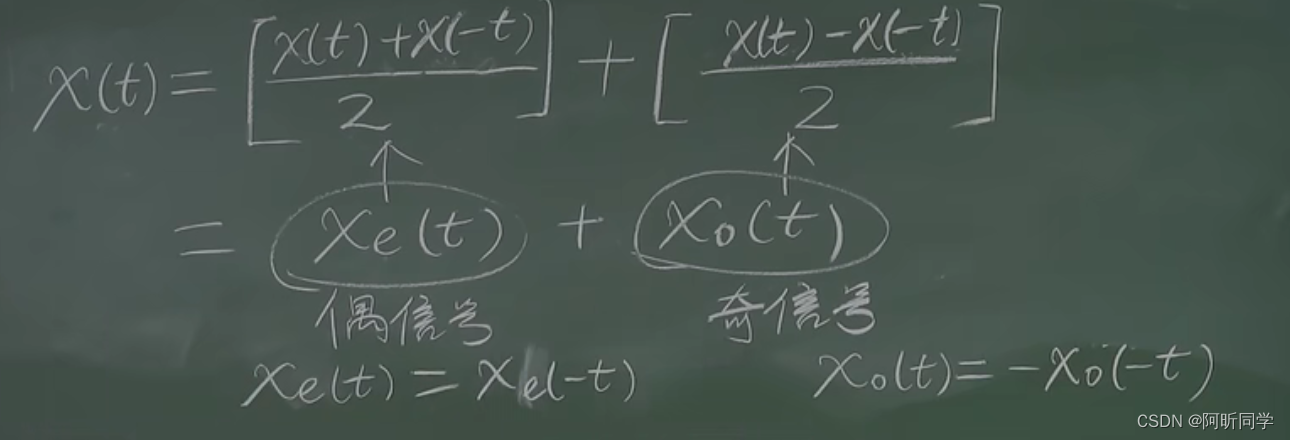 x(t) = [ (x(t)+x(-t))/2 ] + [ (x(t)-x(-t))/2 ]
= xe(t) + xo(t)
偶信号 奇信号
xe(t) = xe(-t) xo(t) = -xo(-t)
CSDN @阿昕同学